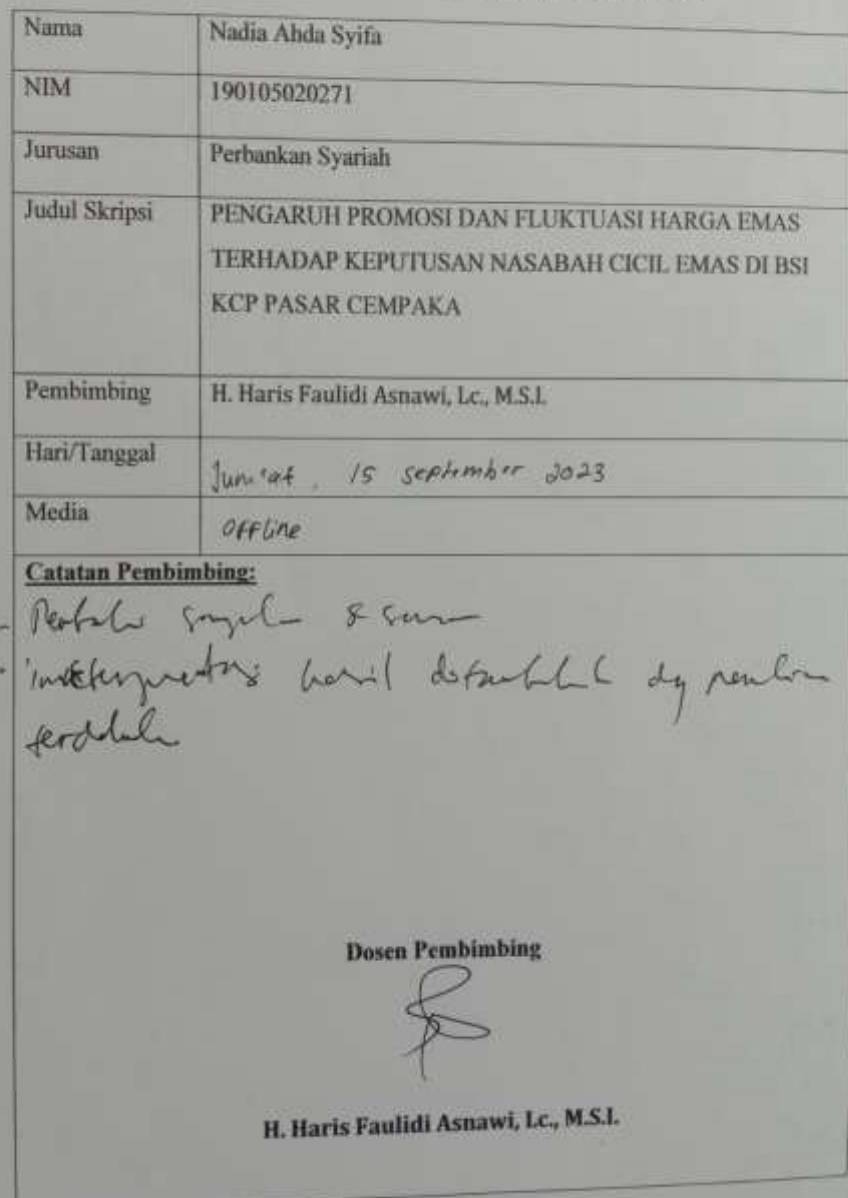 Nama Nadia Ahda Syifa
NIM 190105020271
Jurusan Perbankan Syariah
Judul Skripsi PENGARUH PROMOSI DAN FLUKTUASI HARGA EMAS
TERHADAP KEPUTUSAN NASABAH CICIL EMAS DI BSI
KCP PASAR CEMPAKA
Pembimbing H. Haris Faulidi Asnawi, Lc., M.S.I.
Hari/Tanggal Jum'at, 15 september 2023
Media offline
Catatan Pembimbing:
- &
- hasil dg
terdahulu
Dosen Pembimbing
H. Haris Faulidi Asnawi, Lc., M.S.I.